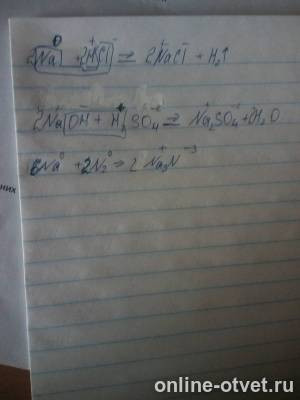 2Na⁰ + 2H⁺Cl⁻ = 2Na⁺Cl⁻ + H₂↑
2Na⁺OH⁻ + H₂⁺SO₄⁻² = Na₂⁺SO₄⁻² + 2H₂O
6Na⁰ + 2N₂⁰ = 2Na₃⁺N⁻³
них
online-otvet.ru